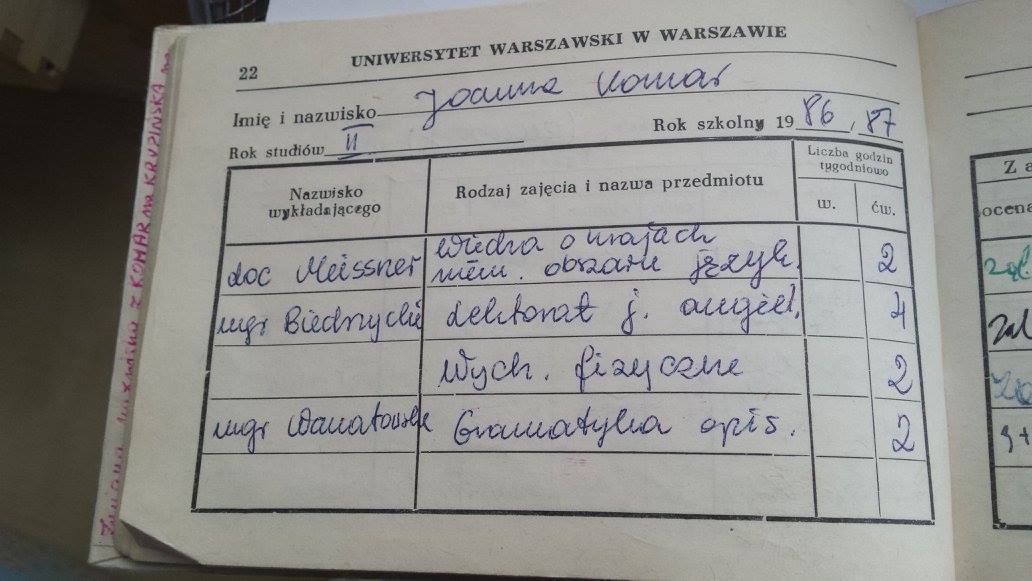 UNIWERSYTET WARSZAWSKI W WARSZAWIE
22
Imię i nazwisko Joanna Komar
Rok studiów II Rok szkolny 19 86 / 87
Nazwisko wykładającego
Rodzaj zajęcia i nazwa przedmiotu
Liczba godzin tygodniowo
w. ćw.
doc Meissner Wiedza o krajach
niem. obszaru język. 2
mgr Lektorat j. angiel. 4
Wych. fizyczne 2
mgr Gramatyka opis. 2
Zmiana nazwiska z KOMAR na KRUZIŃSKA
Z a
ocena
zal
zal